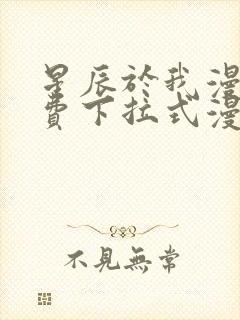 星辰於我漫
費下拉式漫
不見無常